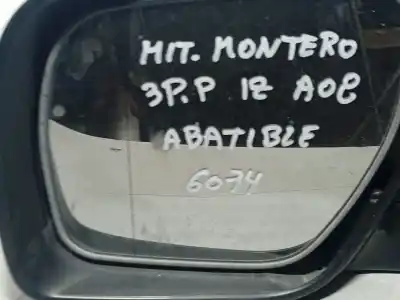 MIT. MONTERO
3P.P IZ AO8
ABATIBLE
6074